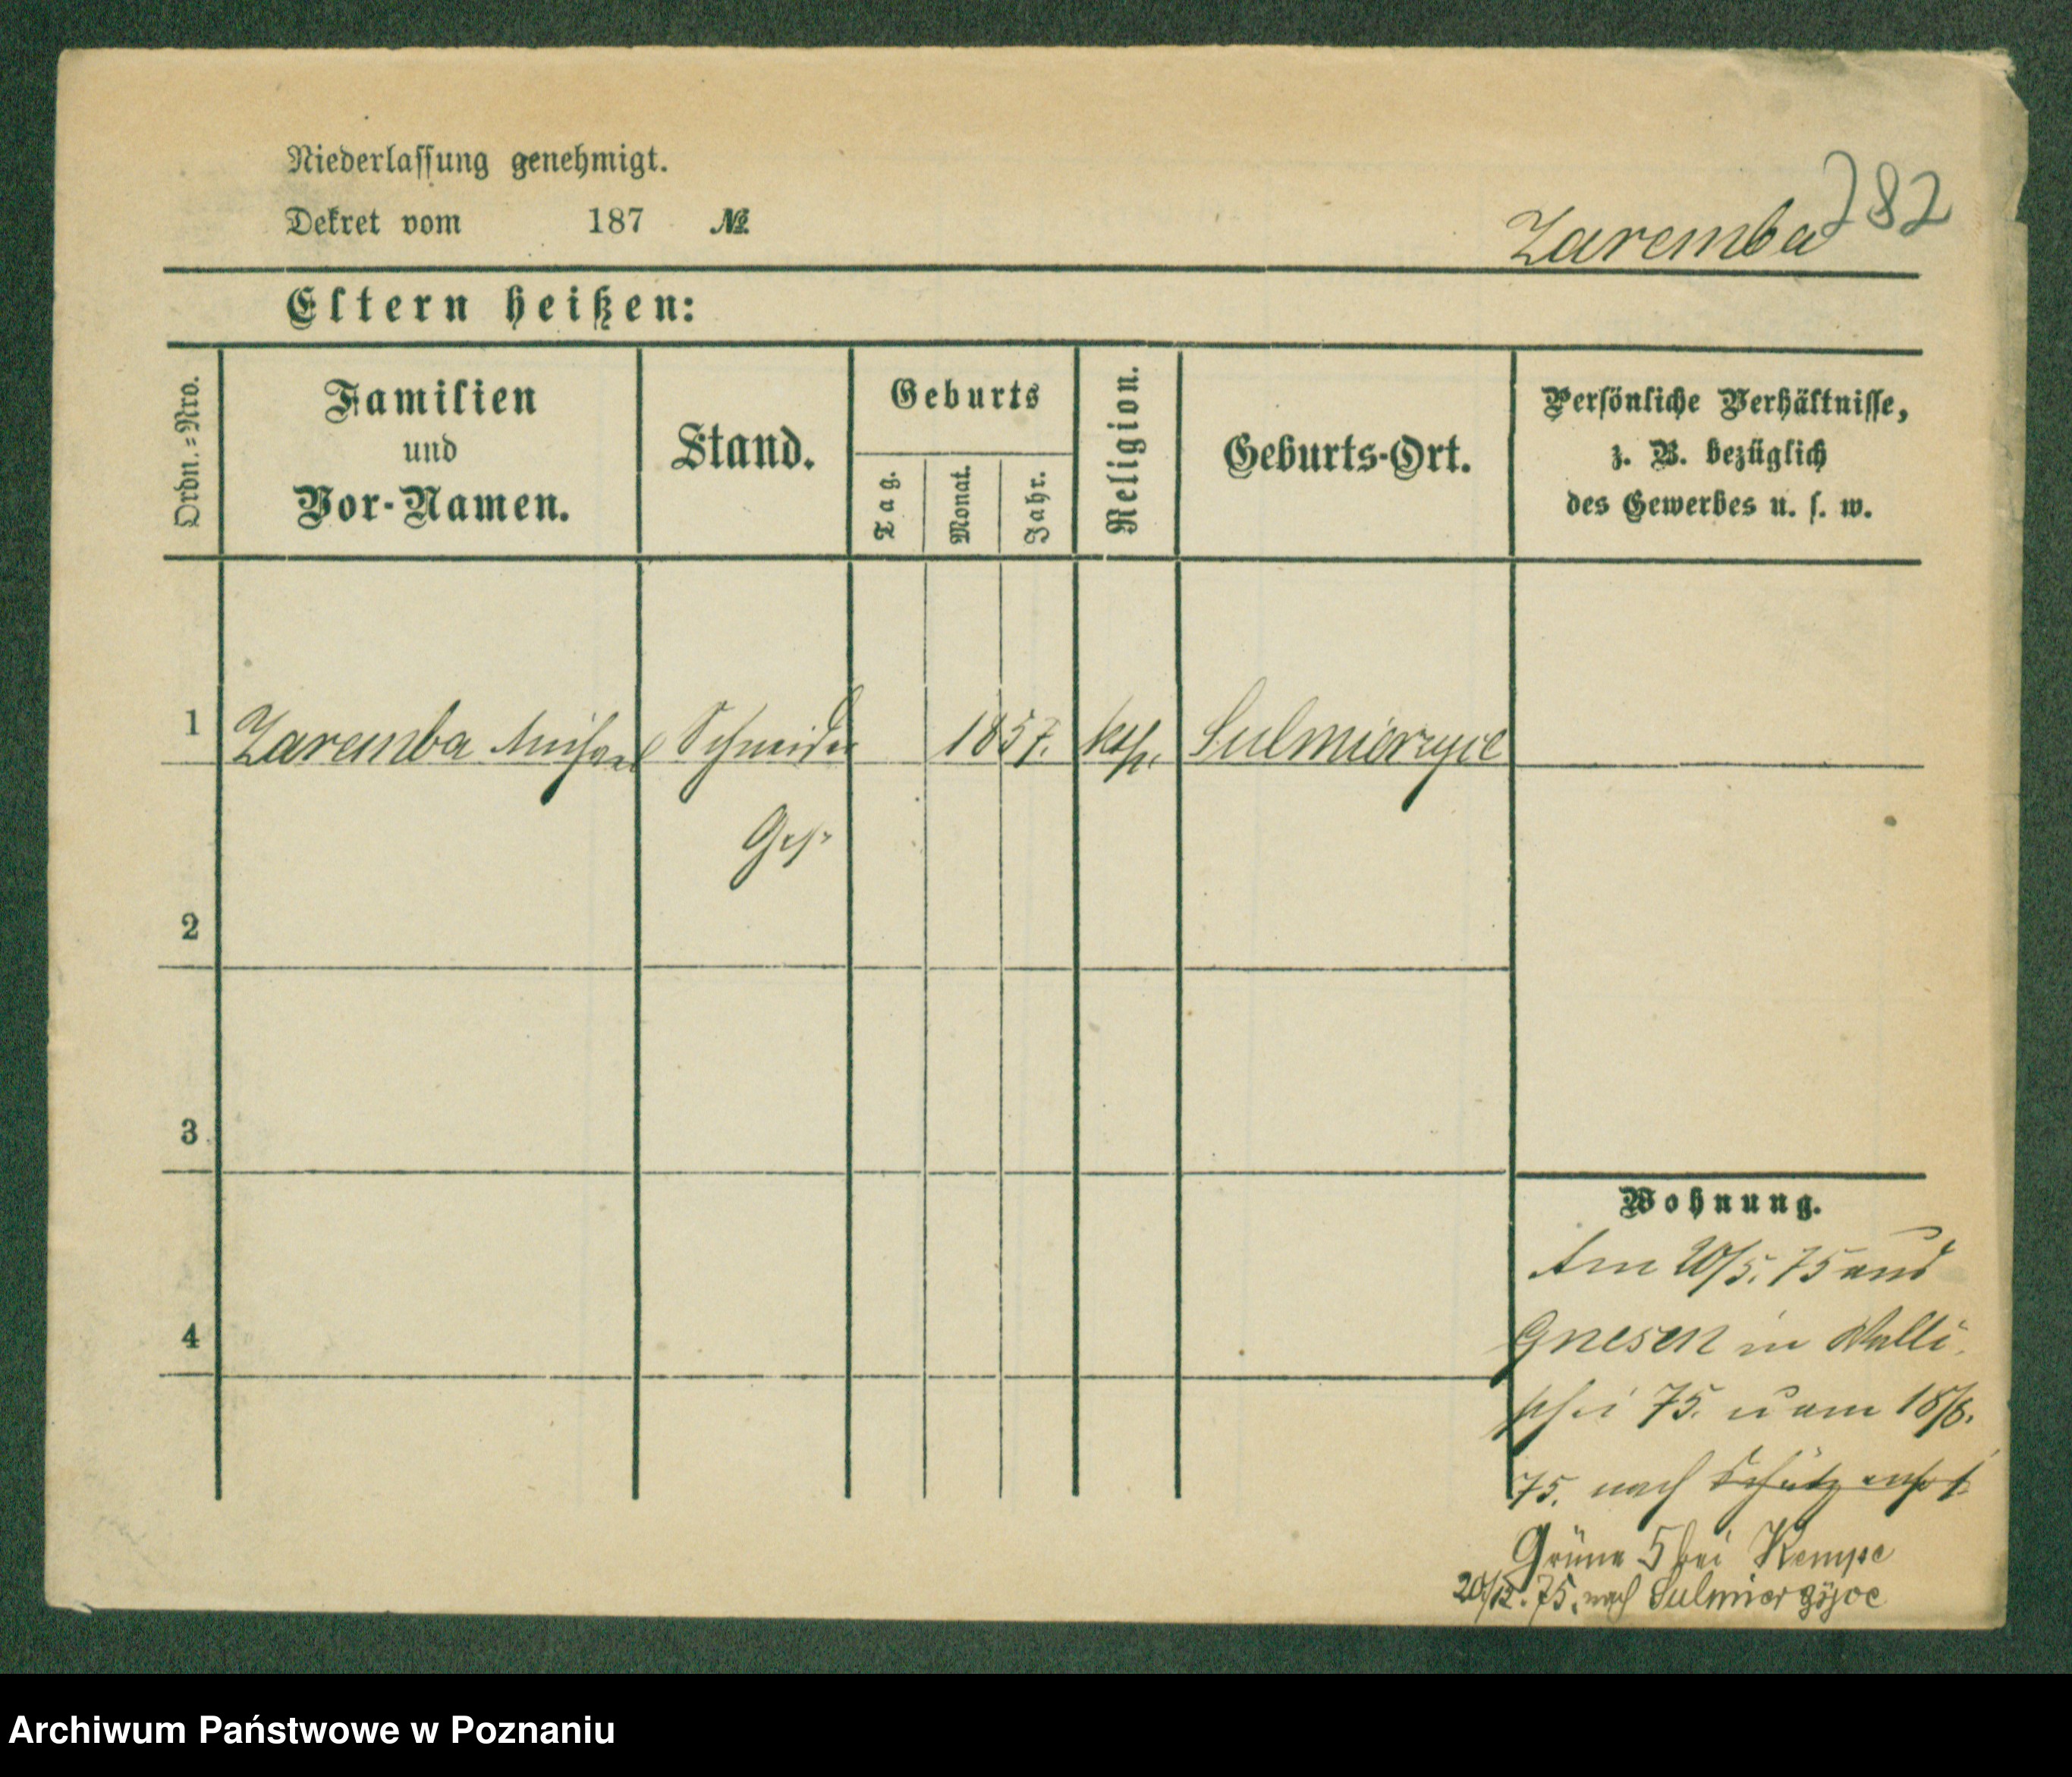 Niederlassung genehmigt.
Dekret vom 187 №
282
Zaremba
Eltern heißen:
Ordn.=Nro.
Familien
und
Vor-Namen.
Stand.
Geburts
Tag.
Monat.
Jahr.
Religion.
Geburts-Ort.
Persönliche Verhältnisse,
z. B. bezüglich
des Gewerbes u. s. w.
1 Zaremba Michael Schneider 1857. kath. Sulmierzyce
Ges.
2
3
4
Wohnung.
Am 20/5. 75 aus
Gnesen in Walli
schei 75. u am 18/6.
75. nach Schützenstr
Grüne 5 bei Kempe
20/12. 75. nach Sulmierzyce
Archiwum Państwowe w Poznaniu